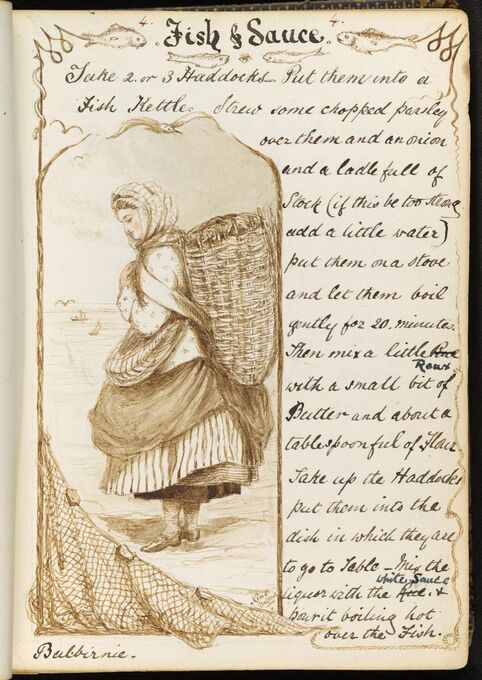 4. Fish & Sauce. 4.
Take 2. or 3 Haddocks - Put them into a
Fish Kettle. Strew some chopped parsley
over them and an onion
and a ladle full of
Stock (if this be too strong
add a little water)
put them on a stove
and let them boil
gently for 20. minutes.
Then mix a little Rue
Roux
with a small bit of
Butter and about a
tablespoonful of Flour
Take up the Haddocks
put them into the
dish in which they are
to go to Table - Mix the
white Sauce
liquor with the Rue. &
pour it boiling hot
over the Fish.
Balbirnie.